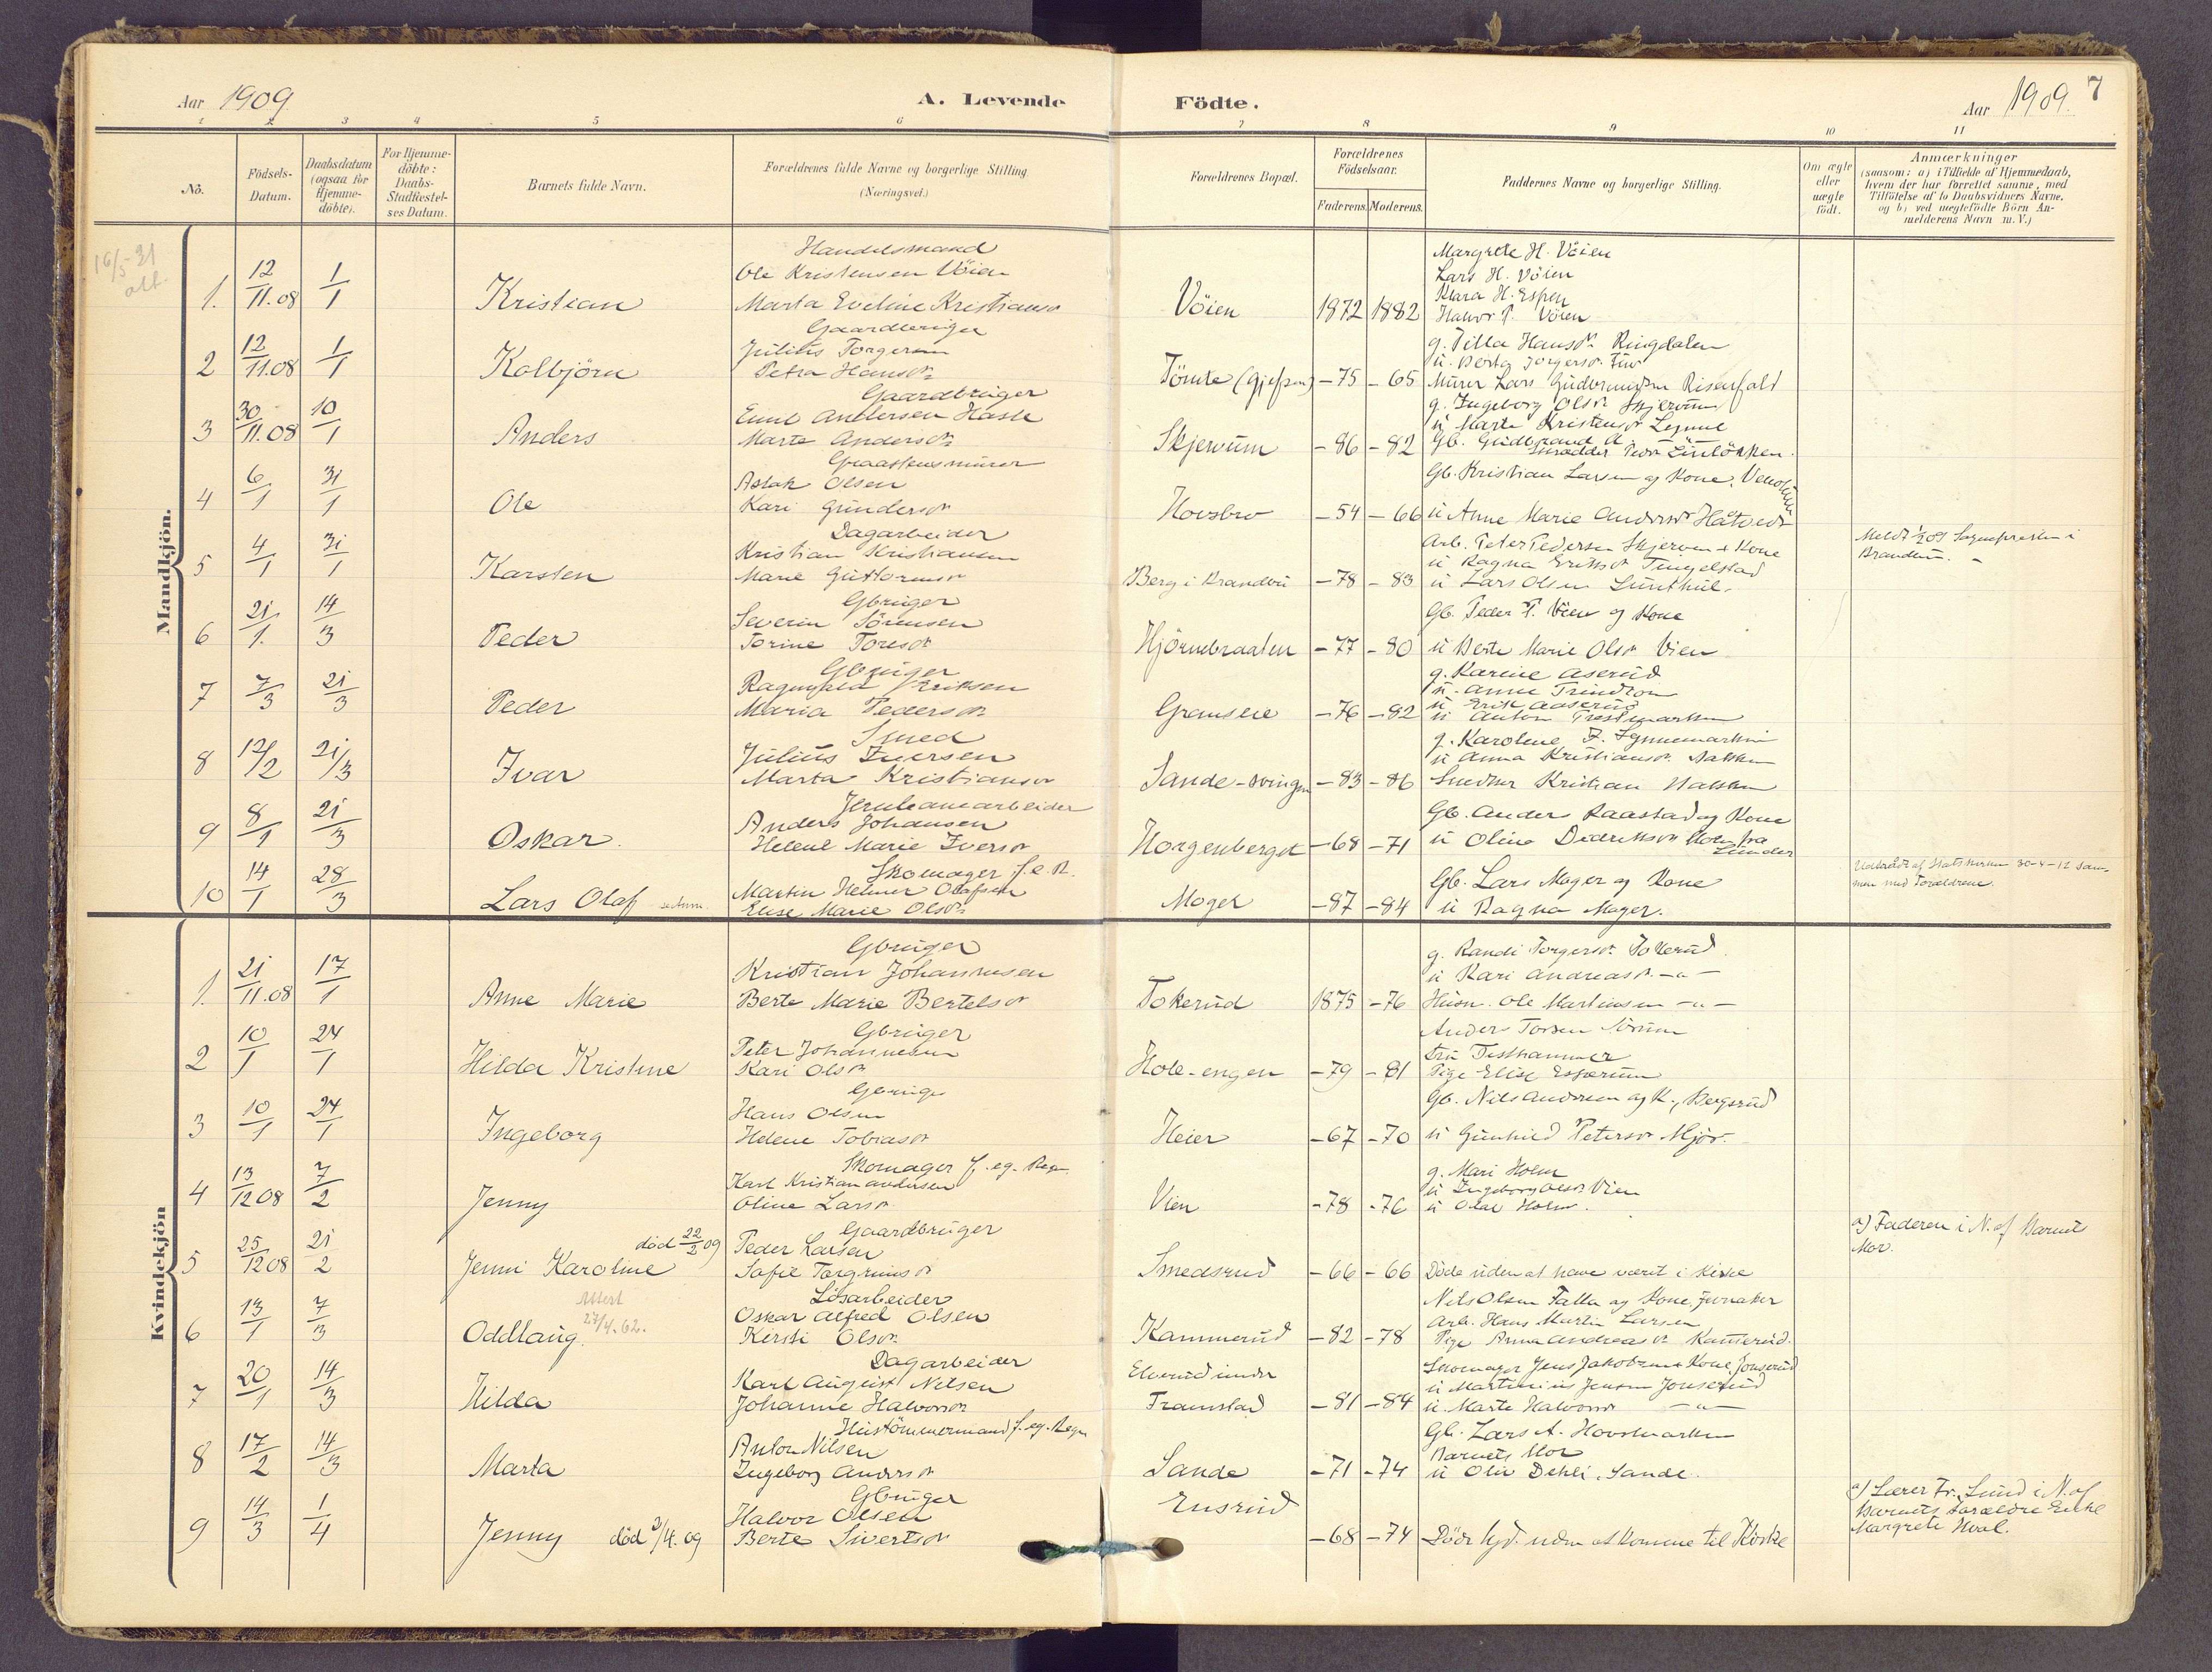 Aar 1909.
A. Levende
Födte.
Aar 1909.
7
1 2 3 4 5 6 7 8 9 10 11
Nö.
Födsels-
Datum.
Daabsdatum
(ogsaa for
Hjemme-
döbte).
For Hjemme-
döbte:
Daabs-
Stadfæstel-
ses Datum.
Barnets fulde Navn.
Forældrenes fulde Navne og borgerlige Stilling
(Næringsvei.)
Forældrenes Bopæl.
Forældrenes
Födselsaar.
Faderens. Moderens.
Faddernes Navne og borgerlige Stilling.
Om ægte
eller
uægte
födt.
Anmærkninger
(saasom: a) i Tilfælde af Hjemmedaab,
hvem der har forrettet samme, med
Tilföielse af to Daabsvidners Navne.
og b) ved uægtefödte Börn An-
melderens Navn m. V.)
16/5-31
att.
Mandkjön.
1. 12/11.08 1/1 Kristian
Handelsmand
Ole Kristensen Vöien
Marta Eveline Kristiansdr
Vöien 1872 1882
Margrete H. Vöien
Lars H. Vöien
Klara H. Espen
Halvor P. Vöien
2 12/11.08 1/1 Kolbjörn
Gaardbruger
Julius Torgersen
Petra Hansdr
Tömte (Gjefsen) -75 -65
g. Pilla Hansdr. Ringdalen
u. Berta Torgersdr.
Murer Lars Gudbrandsen Risenfald
3 30/11.08 10/1 Anders
Gaardbruger
Emil Andersen Hasle
Marte Andersdr
Skjervum -86 -82
g. Ingeborg Olsdr Skjervum
u Marte Kristensdr Lynne
Gb. Gudbrand A
4 6/1 31/1 Ole
Graastensmurer
Aslak Olsen
Kari Gundersdr
Hovsbro -54 -66
Gb. Kristian Larsen og Kone,
u Anne Marie Andersdr
5 4/1 31/1 Karsten
Dagarbeider
Kristian Kristiansen
Marie Guttormsdr
Berg i Brandbu -78 -83
Arb. Peter Pedersen Skjerven + Kone
u Ragna Eriksdr Tingelstad
u Lars Olsen
Meldt 1/2 09 Sognepresten i
Brandbu.
6 21/1. 14/3 Peder
Gbruger
Severin Sörensen
Torine Toresdr
Hjörnebraaten -77 -80
Gb. Peder P. Vien og Kone
u Berte Marie Olsdr Vien
7 7/3 21/3 Peder
Gbruger
Ragnvald Eriksen
Maria Pedersdr
Granseie -76 -82
g. Karine Aserud
u. Anne
u Erik Aaserud
u Anton
8 12/2 21/3 Ivar
Smed
Julius Iversen
Marta Kristiansdr
Sande-svingen -83 -86
g. Karoline
u Anna Kristiansdr.
Snedker Kristian
9 8/1 21/3 Oskar.
Jernbanearbeider
Anders Johansen
Helene Marie Iversdr
Horgenberget -68 -71
Gb. Anders Raastad og Kone
u Oline Dedriksdr
10 14/1 28/3 Lars Olaf
Skomager f.e.R.
Martin Helmer Olafsen
Elise Marie Olsdr
Moger -87 -84
Gb. Lars Moger og Kone
u Ragna Moger.
Udtraadt af Statskirken 30-4-12 sam-
men med Forældrene.
Kvindekjön
1. 21/11.08 17/1 Anne Marie
Gbruger
Kristian Johannesen
Berte Marie Bertelsdr
Tokerud 1875 -76
g. Randi Torgersdr. Tokerud
u Kari Andreasdr. -"-
Husm. Ole Martinsen -"-
2 10/1 24/1 Hilda Kristine
Gbruger
Peter Johannesen
Kari Olsdr
Hole-engen -79 -81
Anders Torsen
Fru Testhammer
Pige Elise
3 10/1 24/1 Ingeborg
Gbruger
Hans Olsen
Helene Tobiasdr
Heier -67 -70
Gb. Nils Andersen og K., Bergsrud
u Gunhild Petersdr
4 13/12 08 7/2 Jenny
Skomager f. eg. Regn.
Karl Kristian Andersen
Oline Larsdr
Vien -78 -76
g. Mari Holm
u Ingeborg Olsdr. Vien
u Olav Holm.
5 25/12 08 21/2 Jenni Karoline död 22/2 09
Gaardbruger
Peder Larsen
Sofie Torgrimsdr
Smedsrud -66 -66
Döde uden at have været i Kirke
a) Faderen i N. af Barnets
Mor.
6 13/1 7/3 Oddlaug.
Attest
27/4.62.
Lösarbeider
Oskar Alfred Olsen
Kirsti Olsdr
Kammerud -82 -78
Nils Olsen Falla og Kone, Jevnaker
Arb. Hans Martin Larsen
Pige Anna Andreasdr Kamerud.
7 20/1 14/3 Hilda
Dagarbeider
Karl August Nilsen
Johanne Halvorsdr
Elverud under
Framstad -81 -84
Skomager Jens Jakobsen + Kone, Jonserud
u Martinius Jensen Jonserud
u. Marte Halvorsdr -"-
8 17/2 14/3 Marta
Hustömmermand f. eg. Regn
Anton Nilsen
Ingeborg Andersdr
Sande -71 -74
Gb. Lars A. Hovsmarken
Barnets Mor
u Oliv Dehli, Sande.
9 14/3 1/4 Jenny död 2/4. 09
Gbruger
Halvor Olsen
Berte Sivertsdr
Ensrud -68 -74
Död uden at komme til Kirke
a) Lærer Fr. Lund i N. af
Barnets Forældre Enke
Margrete Hval.